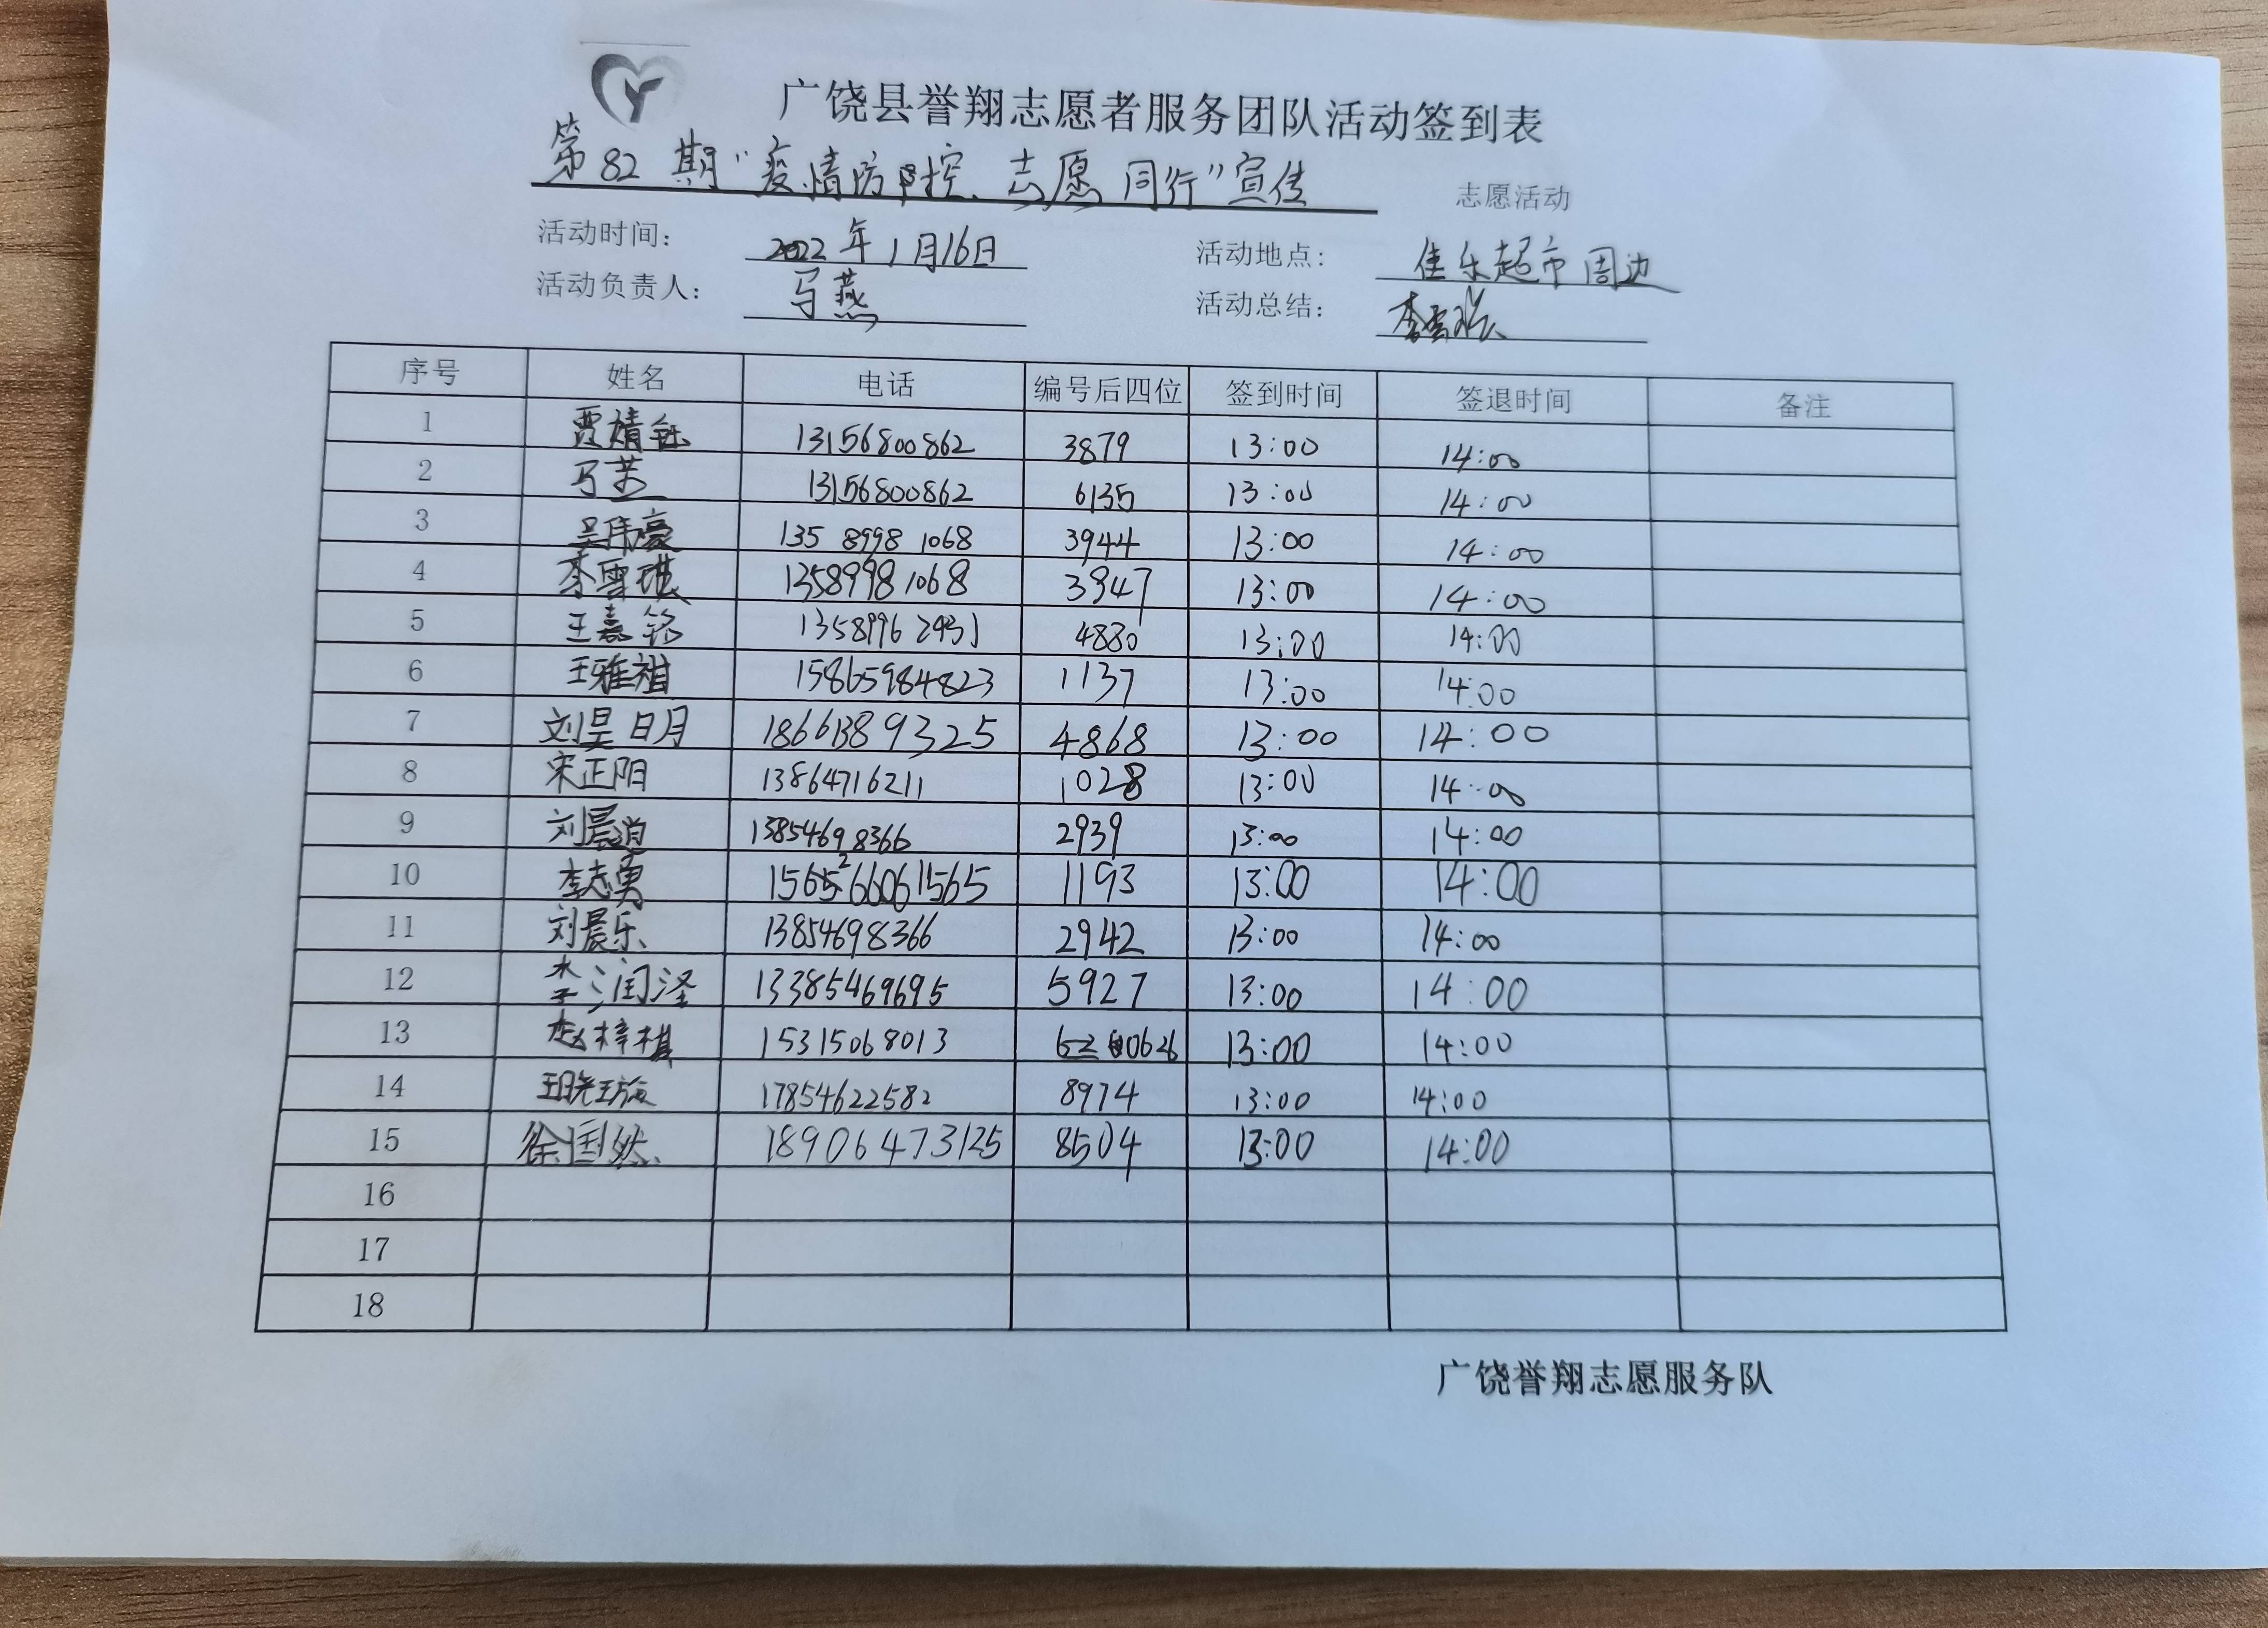 广饶县誉翔志愿者服务团队活动签到表
第82期“疫情防控、志愿同行”宣传 志愿活动
活动时间： 2022年1月16日 活动地点： 佳乐超市周边
活动负责人： 马燕 活动总结： 李雪琪
序号 姓名 电话 编号后四位 签到时间 签退时间 备注
1 贾婧钰 13156800862 3879 13:00 14:00
2 马燕 13156800862 6135 13:00 14:00
3 吴伟豪 135 8998 1068 3944 13:00 14:00
4 李雪琪 13589981068 3947 13:00 14:00
5 王嘉铭 13589962431 4880 13:00 14:00
6 王雅祺 15865984823 1137 13:00 14:00
7 刘昊明 18661389325 4868 13:00 14:00
8 宋正阳 13864716211 1028 13:00 14:00
9 刘晨 13854698366 2939 13:00 14:00
10 李志勇 1193 13:00 14:00
11 刘晨乐 13854698366 2942 13:00 14:00
12 李润泽 13385469695 5927 13:00 14:00
13 赵梓棋 15315068013 0626 13:00 14:00
14 王晓璇 17854622582 8974 13:00 14:00
15 徐国然 18906473125 8504 13:00 14:00
16
17
18
广饶誉翔志愿服务队